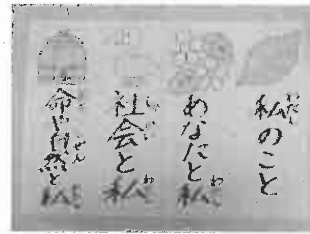 私のこと
あなたと私
社会と私
命や自然と私